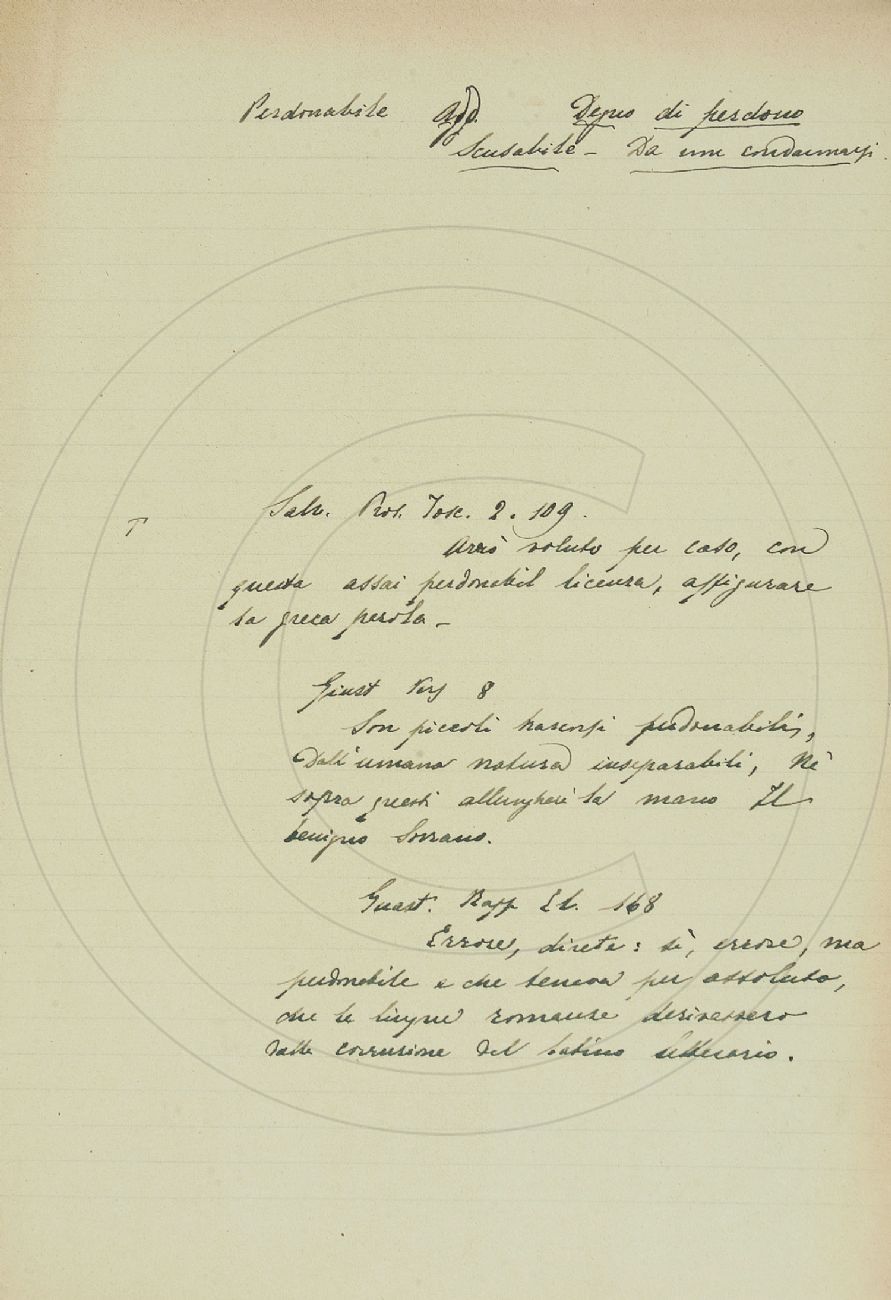 Perdonabile Add. Degno di perdono
Scusabile - Da non condannarsi.
Salv. Pros. Tosc. 2. 109.
T
Avrò voluto per caso, con
questa assai perdonabil licenza, affigurare
la greca parola -
Giust Vers 8
Son piccoli trascorsi perdonabili,
Dall'umana natura inseparabili, Nè
sopra questi allungherà la mano Il
benigno Sovrano.
Guast. Rapp Et. 168
Errore, direte: sì, errore, ma
perdonabile e che teneva per assoluto,
che le lingue romanze derivassero
dalla corruzione del latino letterario.